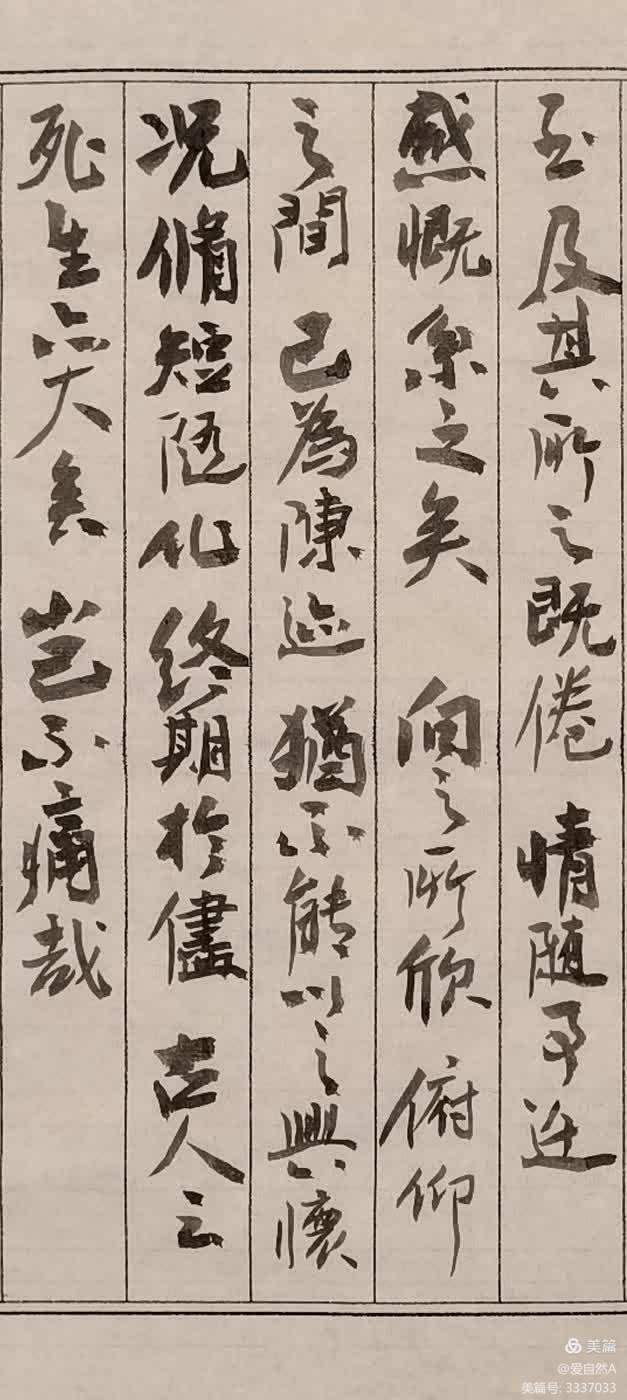 至及其所之既倦情随事迁
感慨係之矣向之所欣俯仰
之間已為陳迹猶不能以之興懷
况脩短随化終期於儘古人云
死生亦大矣豈不痛哉
美篇
@爱自然A
美篇号: 3337033